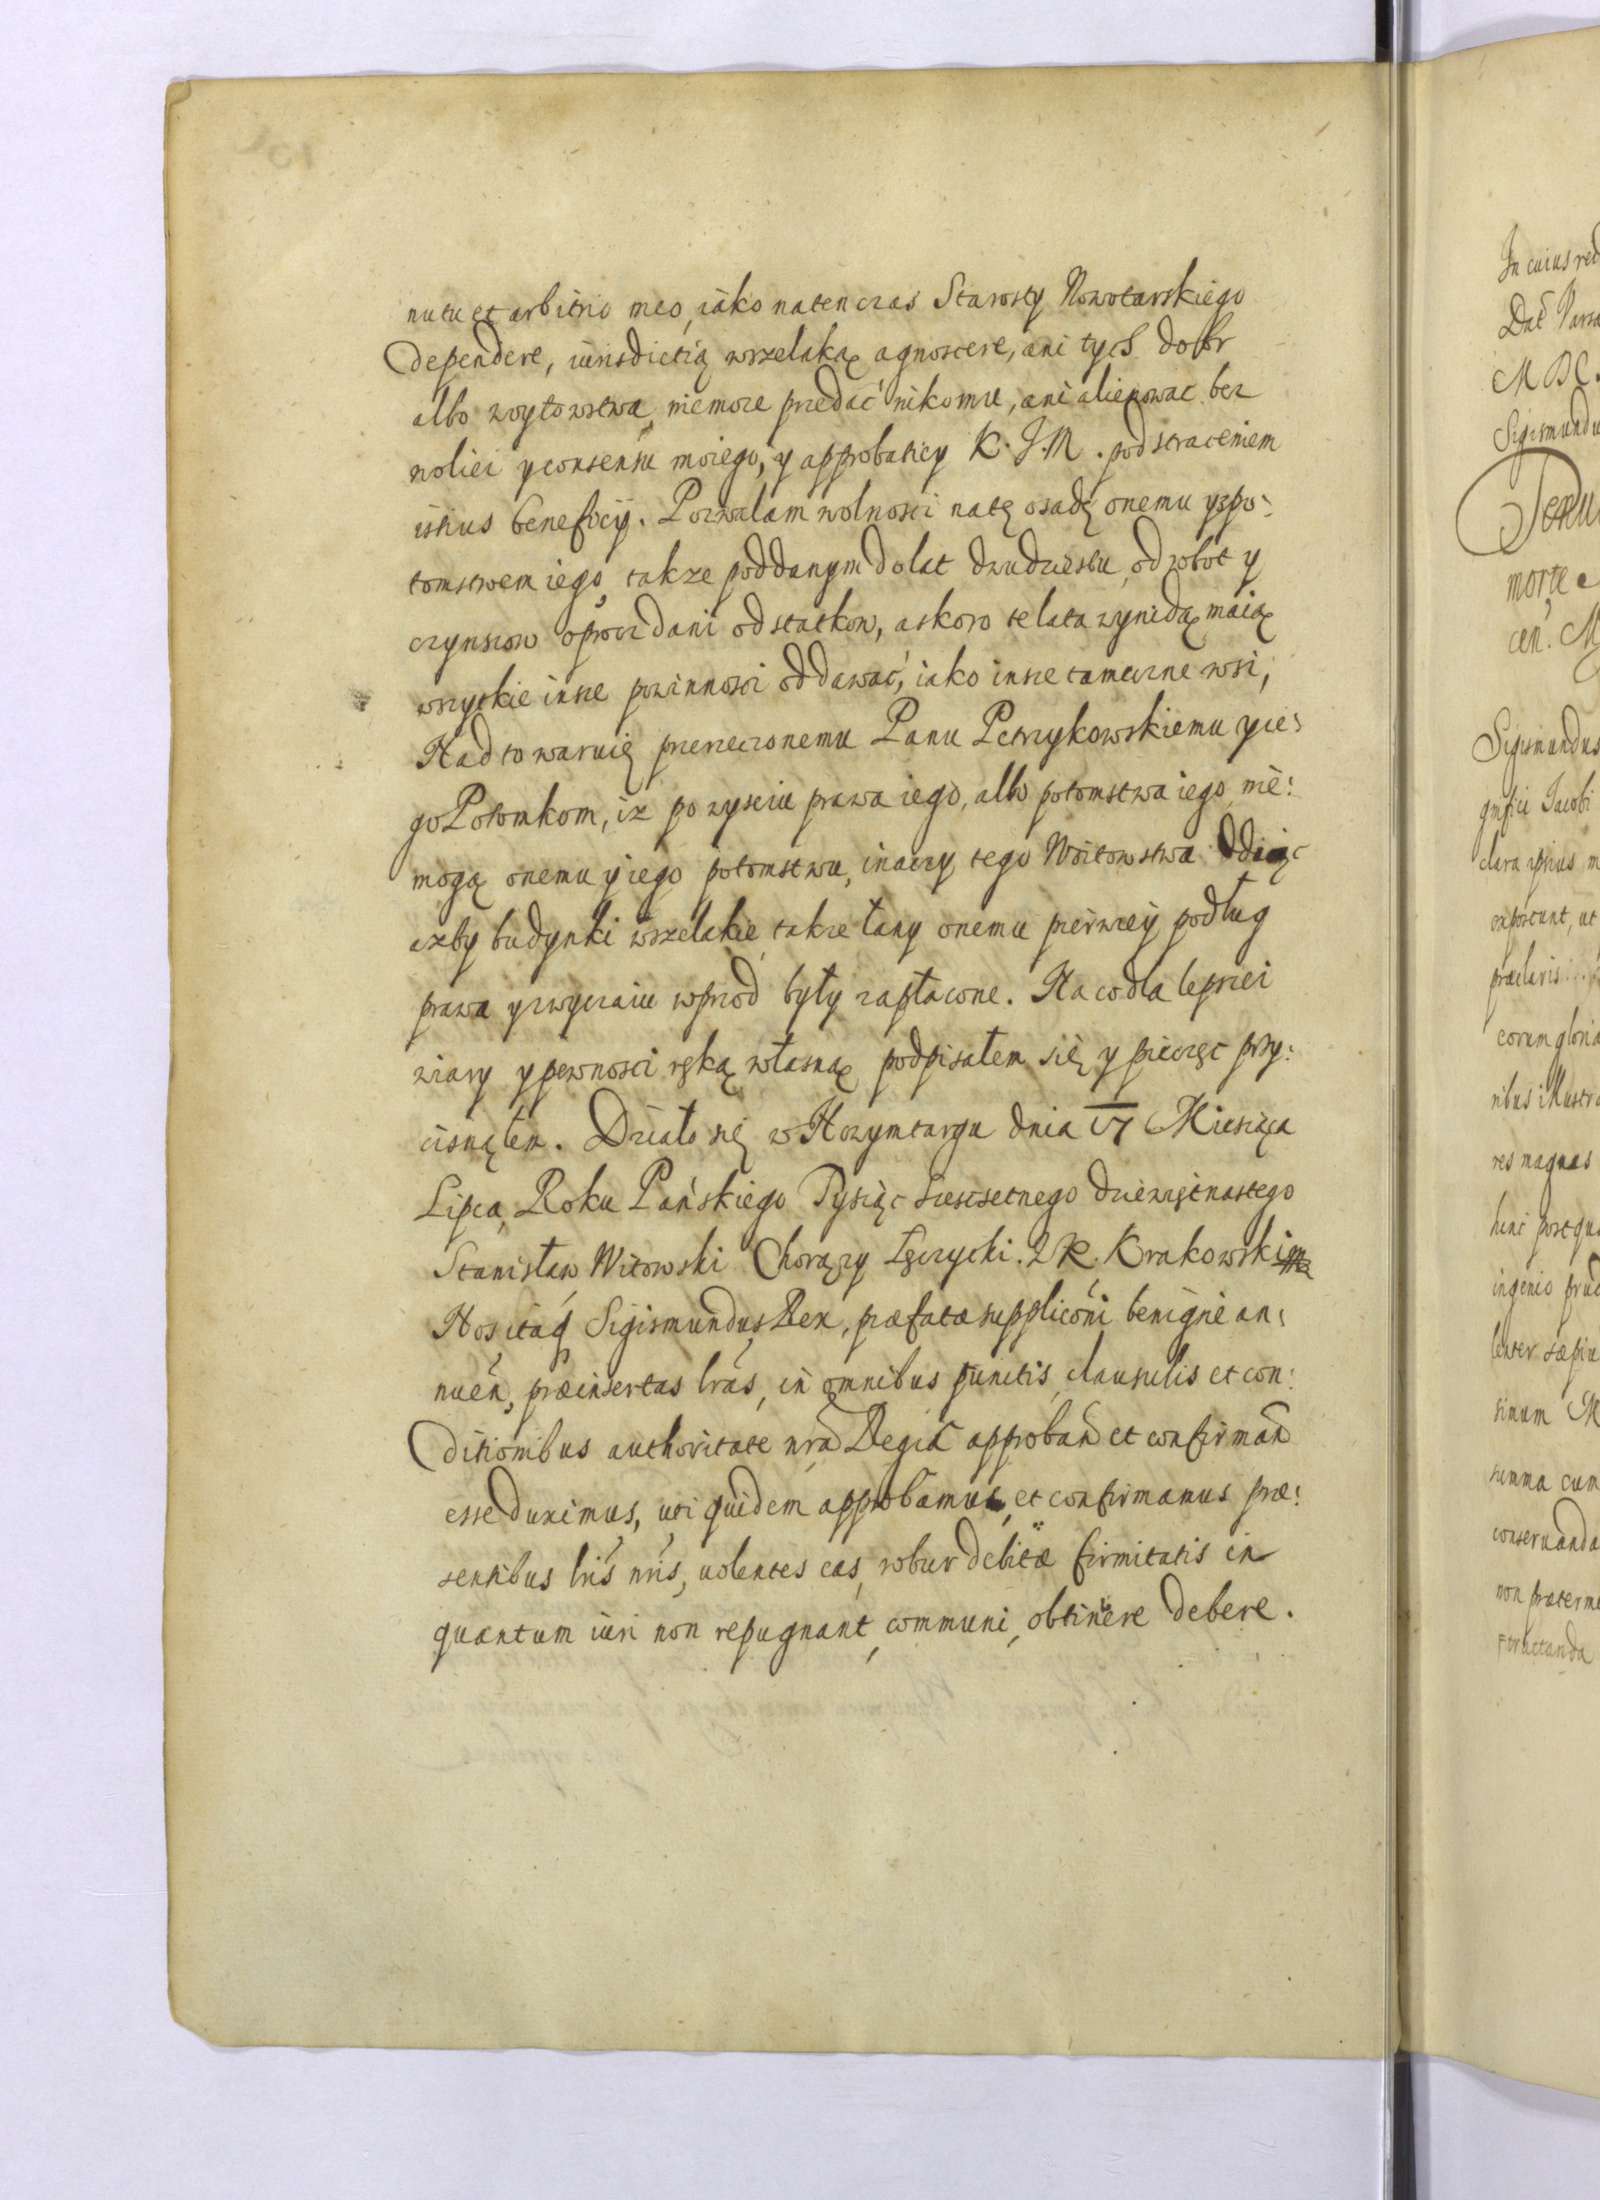 nutu et arbitrio meo, iako natenczas Starosty Nowotarskiego
dependere, iurisdictią wszelaką agnoscere, ani tych dobr
albo woytowstwa, niemoze przedać nikomu, ani alienowac bez
woliei y consensu moiego, y approbatiey K. J. M. pod straceniem
istius beneficÿ. Pozwalam wolnosci natę osadę onemu yzpo:
tomstwem iego, takze poddanym do lat dwudziestu, od robot y
czynszow oprocz dani od statkow, askoro te lata wynidą, maią
wszytkie insze powinnosci oddawać, iako insze tameczne wsi,
Nadto waruię przerzeczonemu Panu Petrzykowskiemu yie:
go Potomkom, iz po zysciu prawa iego, albo potomstwa iego, nie:
mogą onemu y iego potomstwu, inaczy tego Woitowstwa Odiąc
azby budynki wszelakie, takze łany onemu pierwey podług
prawa y zwyczaiu wprzod były zapłacone. Na co dla lepszei
wiary y pewnosci ręką własną podpisałem się y pieczęc przy:
cisnąłem. Działo się w Nowymtargu dnia 17 Miesiąca
Lipca, Roku Pańskiego Tysiąc szescsetnego dziewiętnastego
Stanisław Witowski Chorązy Łęczycki. Z K. Krakowski
Nos itaq́ Sigismundus Rex, præfatæ suppliconi benigne an:
nuen, præinsertas lras, in omnibus punctis, clausulis et con:
ditionibus authoritate nra Regia approban et confirman
esse duximus, uti quidem approbamus, et confirmamus præ:
sentibus lris nris, uolentes eas, robur debitæ firmitatis in
quantum iuri non repugnant, communi, obtinere debere.
In cuius rei
M DC.
Sigismundu
morte
cen. M
Sigismundus
gnifici Jacobi
clara ipsius m
exposcunt, ut
præclaris
eorum gloria
ribus illustra
res magnas
hunc postqua
ingenio prud
simum M
summa cum
conseruanda
non præterm